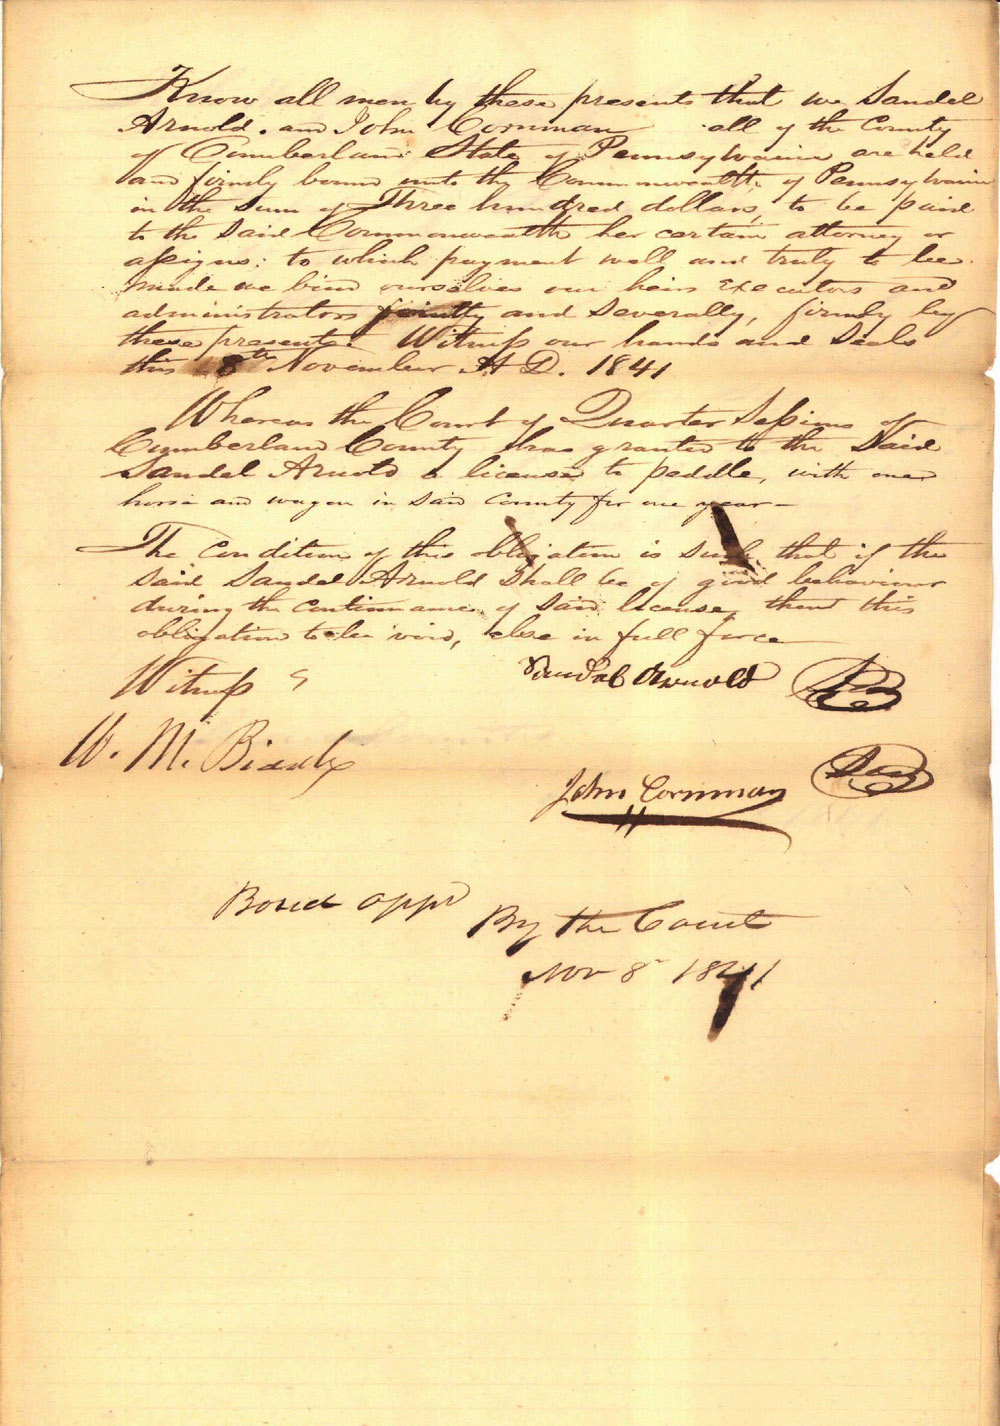 Know all men by these presents that we Sandel
Arnold. and John Cornman all of the County
of Cumberland State of Pennsylvania are held
and firmly bound unto the Commonwealth of Pennsylvania
in the sum of Three hundred dollars, to be paid
to the said Commonwealth her certain attorney or
assigns: to which payment well and truly to be
made we bind ourselves our heirs Executors and
administrators jointly and severally, firmly by
these presents. Witness our hands and Seals
this 8th November A D. 1841
Whereas the Court of Quarter Sessions of
Cumberland County has granted to the Said
Sandel Arnold a license to peddle, with one
horse and wagon in said County for one year—
The Condition of this obligation is such that if the
said Sandel Arnold shall be of good behaviour
during the continuance of said license, then this
obligation to be void, else in full force
Witness
Sandel Arnold Seal
W. M. Biddle
John Cornman Seal
Bond appd
By the Court
Nov 8 1841